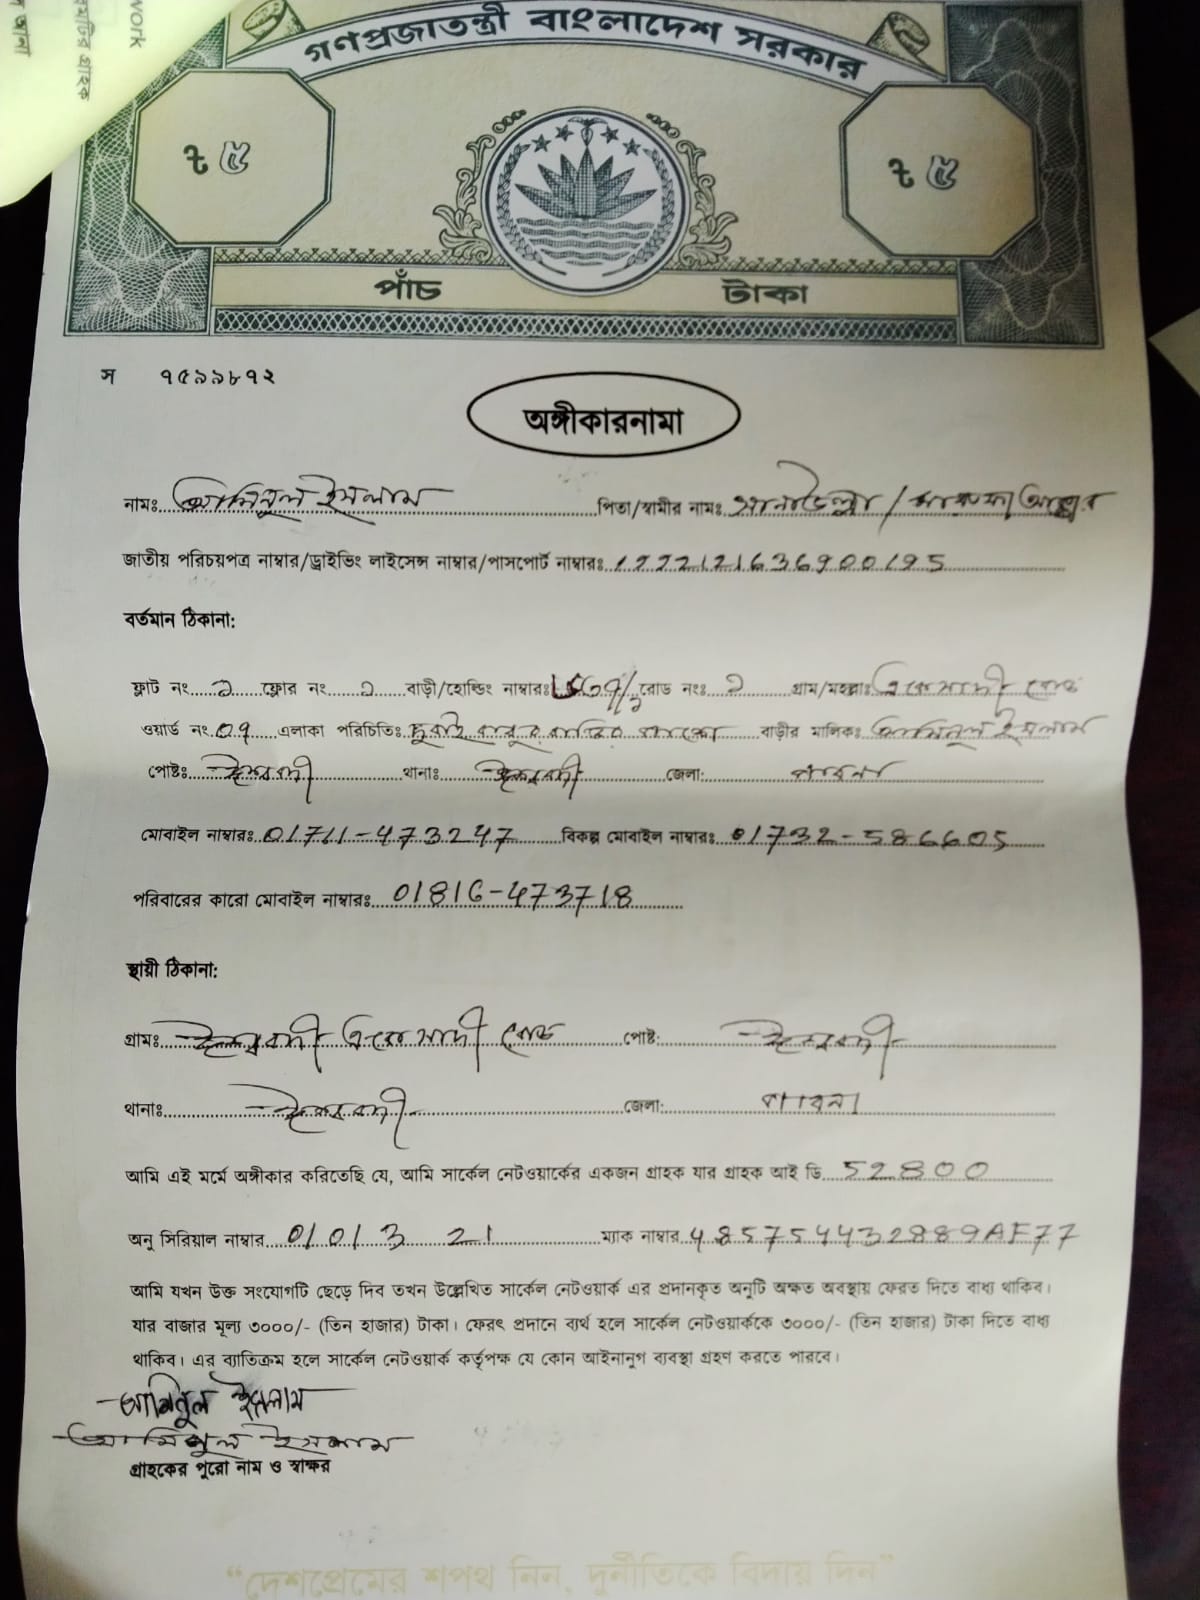 work
গণপ্রজাতন্ত্রী বাংলাদেশ সরকার
৳ ৫ ৳ ৫
পাঁচ টাকা
স ৭৫৯৯৮৭২
অঙ্গীকারনামা
নামঃ আমিনুল ইসলাম পিতা/স্বামীর নামঃ সানাউল্লা /
জাতীয় পরিচয়পত্র নাম্বার/ড্রাইভিং লাইসেন্স নাম্বার/পাসপোর্ট নাম্বারঃ
বর্তমান ঠিকানা:
ফ্লাট নং ফ্লোর নং বাড়ী/হোল্ডিং নাম্বারঃ রোড নংঃ গ্রাম/মহল্লাঃ
ওয়ার্ড নং এলাকা পরিচিতিঃ বাড়ীর মালিকঃ আমিনুল ইসলাম
পোষ্টঃ ঈশ্বরদী থানাঃ ঈশ্বরদী জেলা: পাবনা
মোবাইল নাম্বারঃ 01711-473247 বিকল্প মোবাইল নাম্বারঃ 01732-586605
পরিবারের কারো মোবাইল নাম্বারঃ 01816-473718
স্থায়ী ঠিকানা:
গ্রামঃ ঈশ্বরদী রোড পোষ্ট: ঈশ্বরদী
থানাঃ ঈশ্বরদী জেলা: পাবনা
আমি এই মর্মে অঙ্গীকার করিতেছি যে, আমি সার্কেল নেটওয়ার্কের একজন গ্রাহক যার গ্রাহক আই ডি 52800
অনু সিরিয়াল নাম্বার 01013 21 ম্যাক নাম্বার 4857544432889AF77
আমি যখন উক্ত সংযোগটি ছেড়ে দিব তখন উল্লেখিত সার্কেল নেটওয়ার্ক এর প্রদানকৃত অনুটি অক্ষত অবস্থায় ফেরত দিতে বাধ্য থাকিব।
যার বাজার মূল্য ৩০০০/- (তিন হাজার) টাকা। ফেরৎ প্রদানে ব্যর্থ হলে সার্কেল নেটওয়ার্ককে ৩০০০/- (তিন হাজার) টাকা দিতে বাধ্য
থাকিব। এর ব্যাতিক্রম হলে সার্কেল নেটওয়ার্ক কর্তৃপক্ষ যে কোন আইনানুগ ব্যবস্থা গ্রহণ করতে পারবে।
আমিনুল ইসলাম
আমিনুল ইসলাম
গ্রাহকের পুরো নাম ও স্বাক্ষর
“দেশপ্রেমের শপথ নিন, দুর্নীতিকে বিদায় দিন”